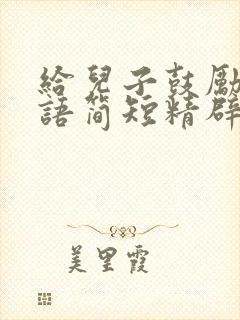 給兒子鼓勵
語簡短精辟
美里霞